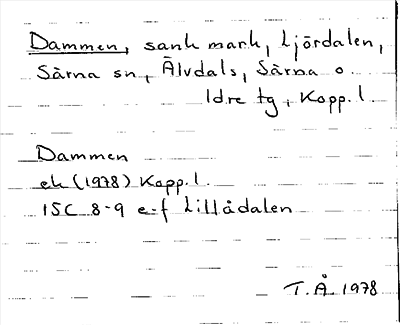 Dammen, sank mark, Ljördalen,
Särna sn, Älvdals, Särna o
Idre tg, Kopp. l
Dammen
ek (1978) Kopp. l
15C 8-9 e-f Lillådalen
T. Å 1978